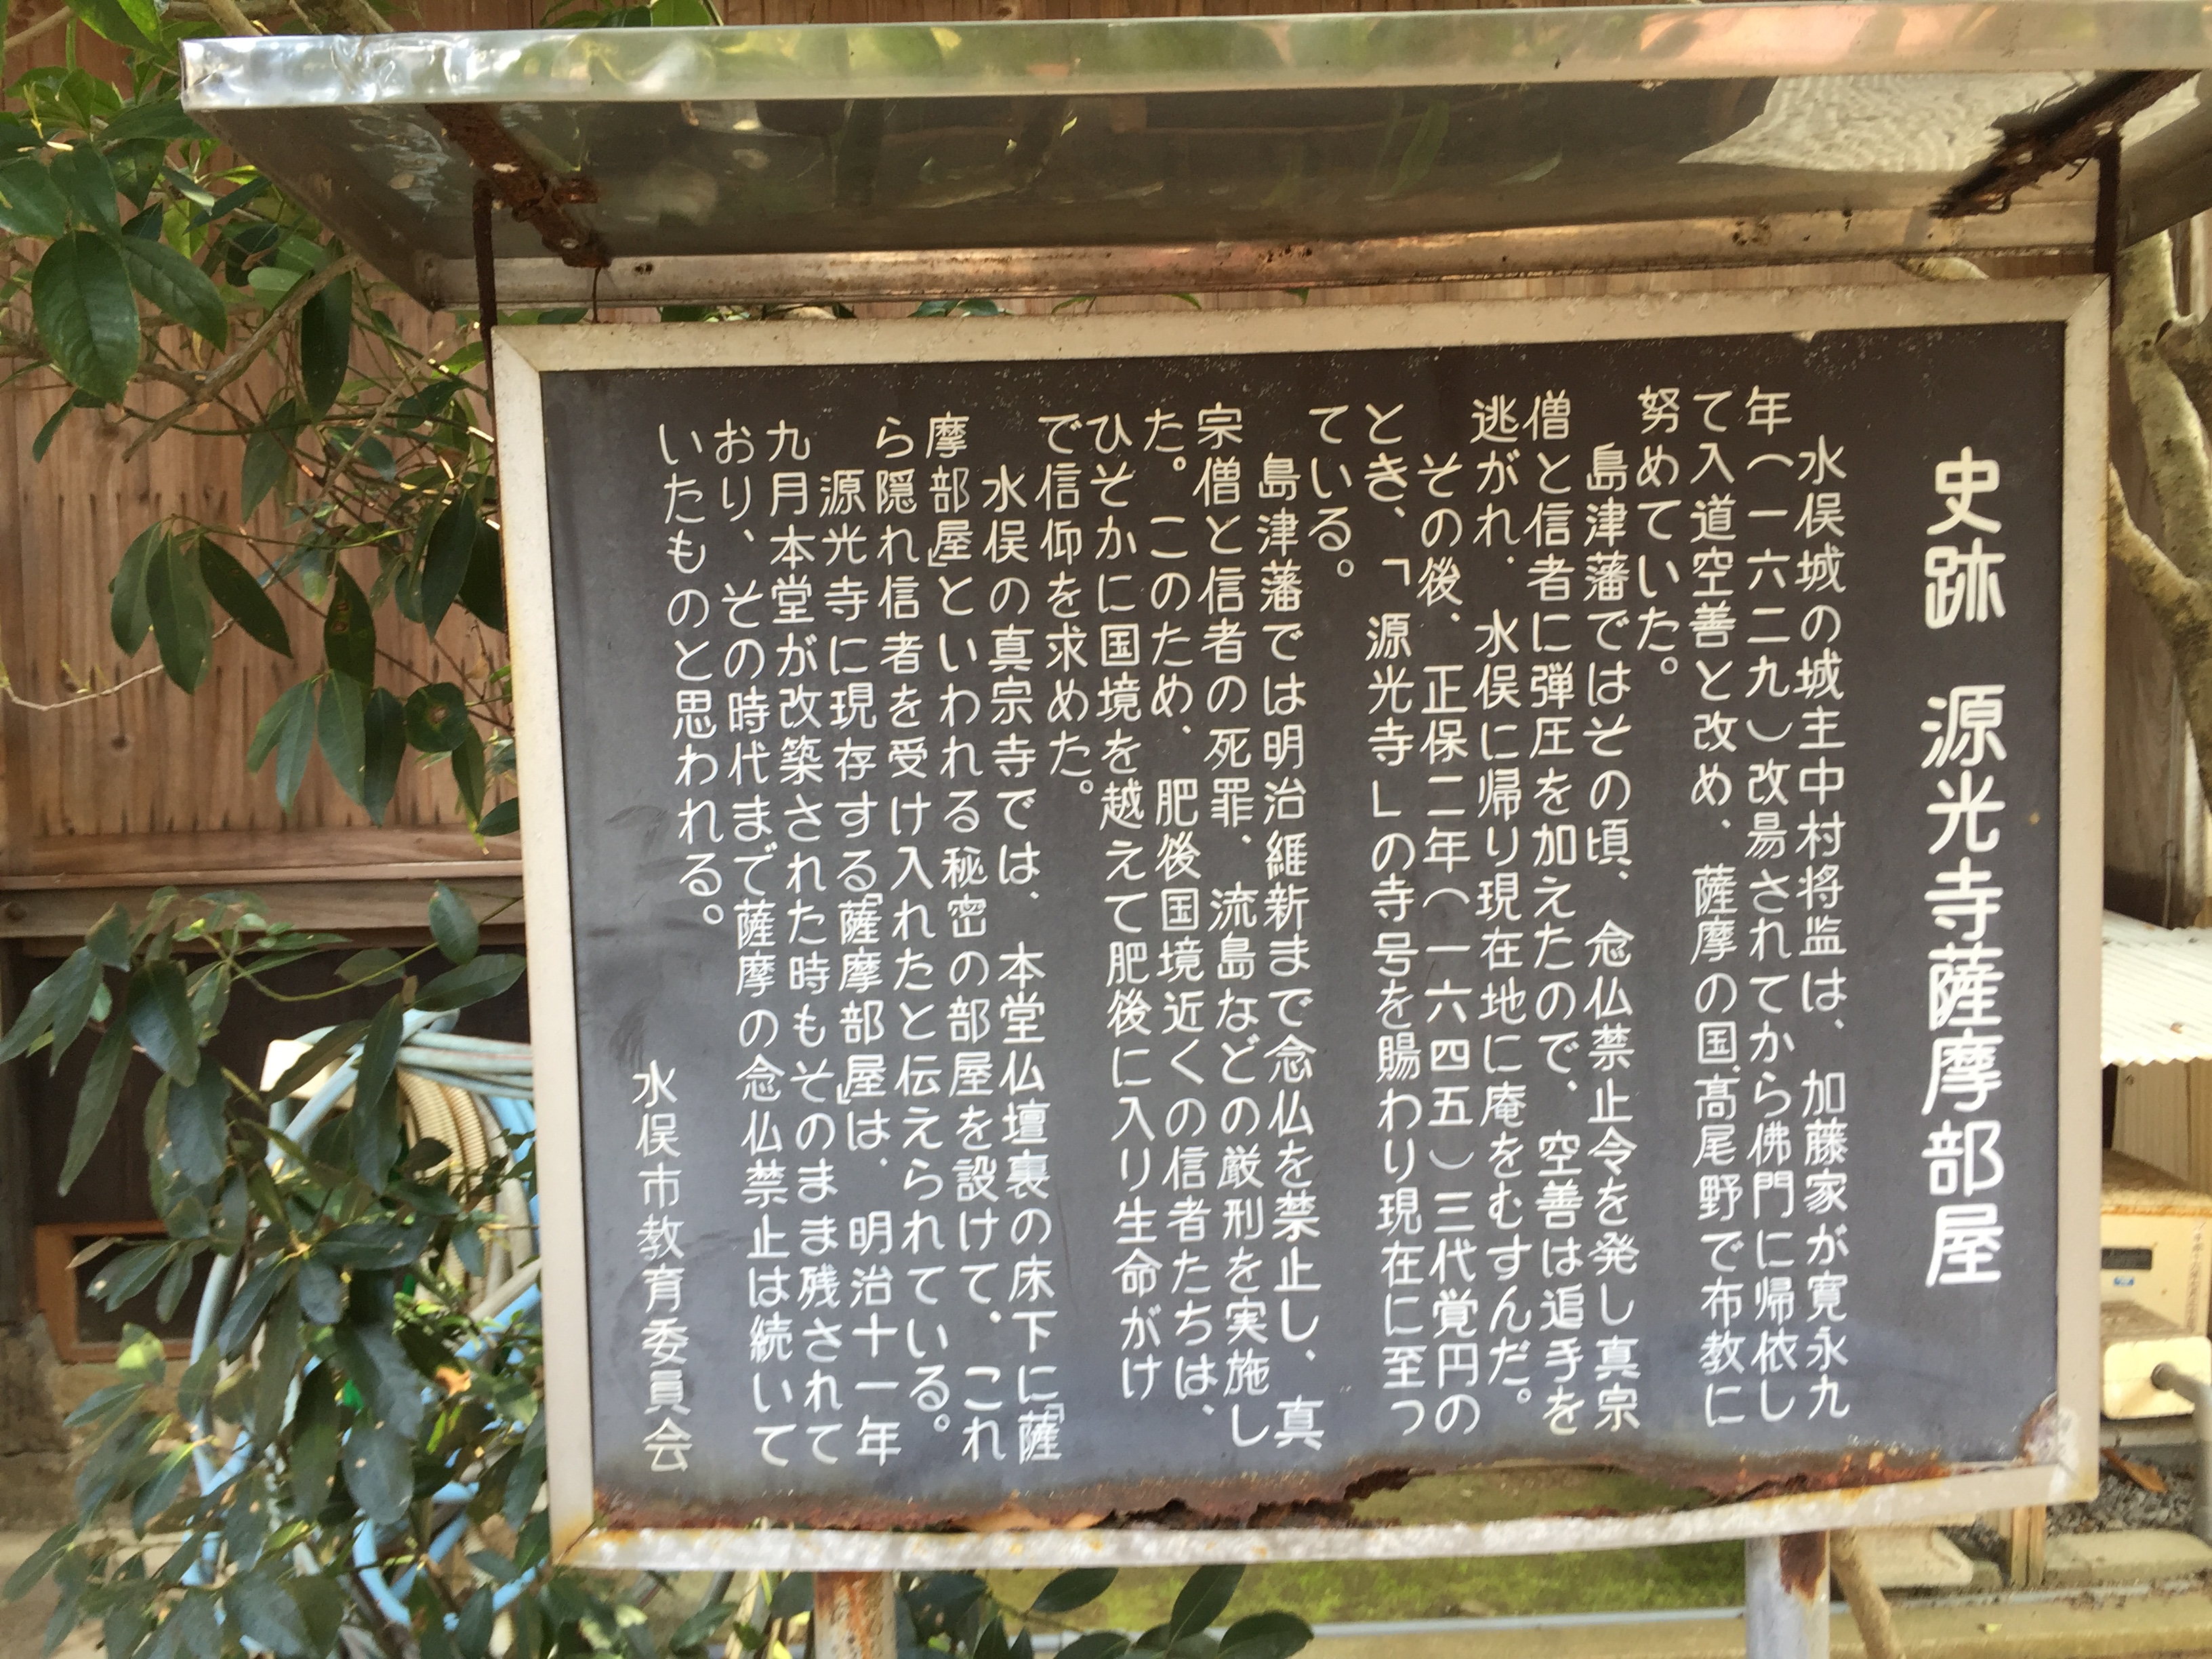 史跡 源光寺薩摩部屋
水俣城の城主中村将監は、加藤家が寛永九
年(一六二九)改易されてから佛門に帰依し
て入道空善と改め、薩摩の国、髙尾野で布教に
努めていた。
島津藩ではその頃、念仏禁止令を発し真宗
僧と信者に弾圧を加えたので、空善は追手を
逃がれ、水俣に帰り現在地に庵をむすんだ。
その後、正保二年(一六四五)三代覚円の
とき、「源光寺」の寺号を賜わり現在に至っ
ている。
島津藩では明治維新まで念仏を禁止し、真
宗僧と信者の死罪、流島などの厳刑を実施し
た。このため、肥後国境近くの信者たちは、
ひそかに国境を越えて肥後に入り生命がけ
で信仰を求めた。
水俣の真宗寺では、本堂仏壇裏の床下に「薩
摩部屋」といわれる秘密の部屋を設けて、これ
ら隠れ信者を受け入れたと伝えられている。
源光寺に現存する「薩摩部屋」は、明治十一年
九月本堂が改築された時もそのまま残されて
おり、その時代まで薩摩の念仏禁止は続いて
いたものと思われる。
水俣市教育委員会